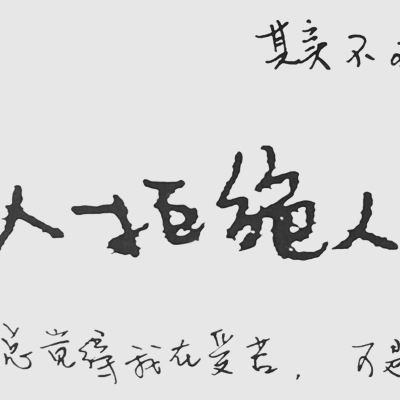 其实不
人一拒绝人
总觉得我在受苦， 可是